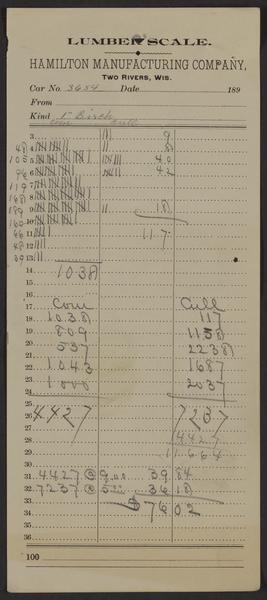 LUMBER SCALE.
HAMILTON MANUFACTURING COMPANY,
TWO RIVERS, WIS.
Car No. 3654 Date 189
From
Kind 1" Birch
Com Cull
3 9
4 48 8
5 105 40
6 96 42
7 119
8 168
9 189 18
10 160
11 66 117
12 48
13 39
14 1038
15
16
17 Com Cull
18 1038 117
19 809 1158
20 537 2238
21
22 1043 1687
23 1000 2037
24
25
26 4427 7237
27
28 4427
29 11.664
30
31 4427 @ 9.00 39 84
32 7237 @ 5.00 36 18
33
34 $76 02
35
36
100